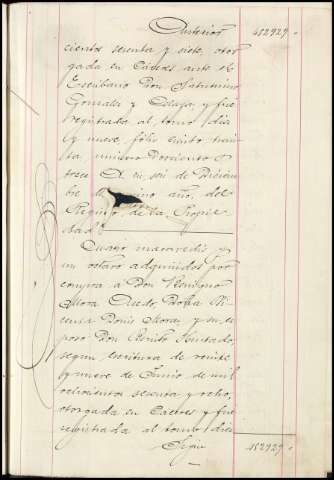 Anterior 452927.
cientos sesenta y siete, otor
gada en Cáceres ante el
Escribano Don Saturnino
Gonzalez y Celaya y fué
registrada al tomo diez
y nueve, fólio ciento trein
ta, número doscientos
trece en seis de Diciem
bre año, del
Registro de la Propie
dad
Cuatro maravedis y
un octavo adquiridos por
compra á Don
Mora Doña Vi
centa Mora, y su es
poso Don Benito Hurtado,
segun escritura de veinte
y nueve de Junio de mil
ochocientos sesenta y ocho,
otorgada en Cáceres y fué
registrada al tomo diez
Sigue 452927.